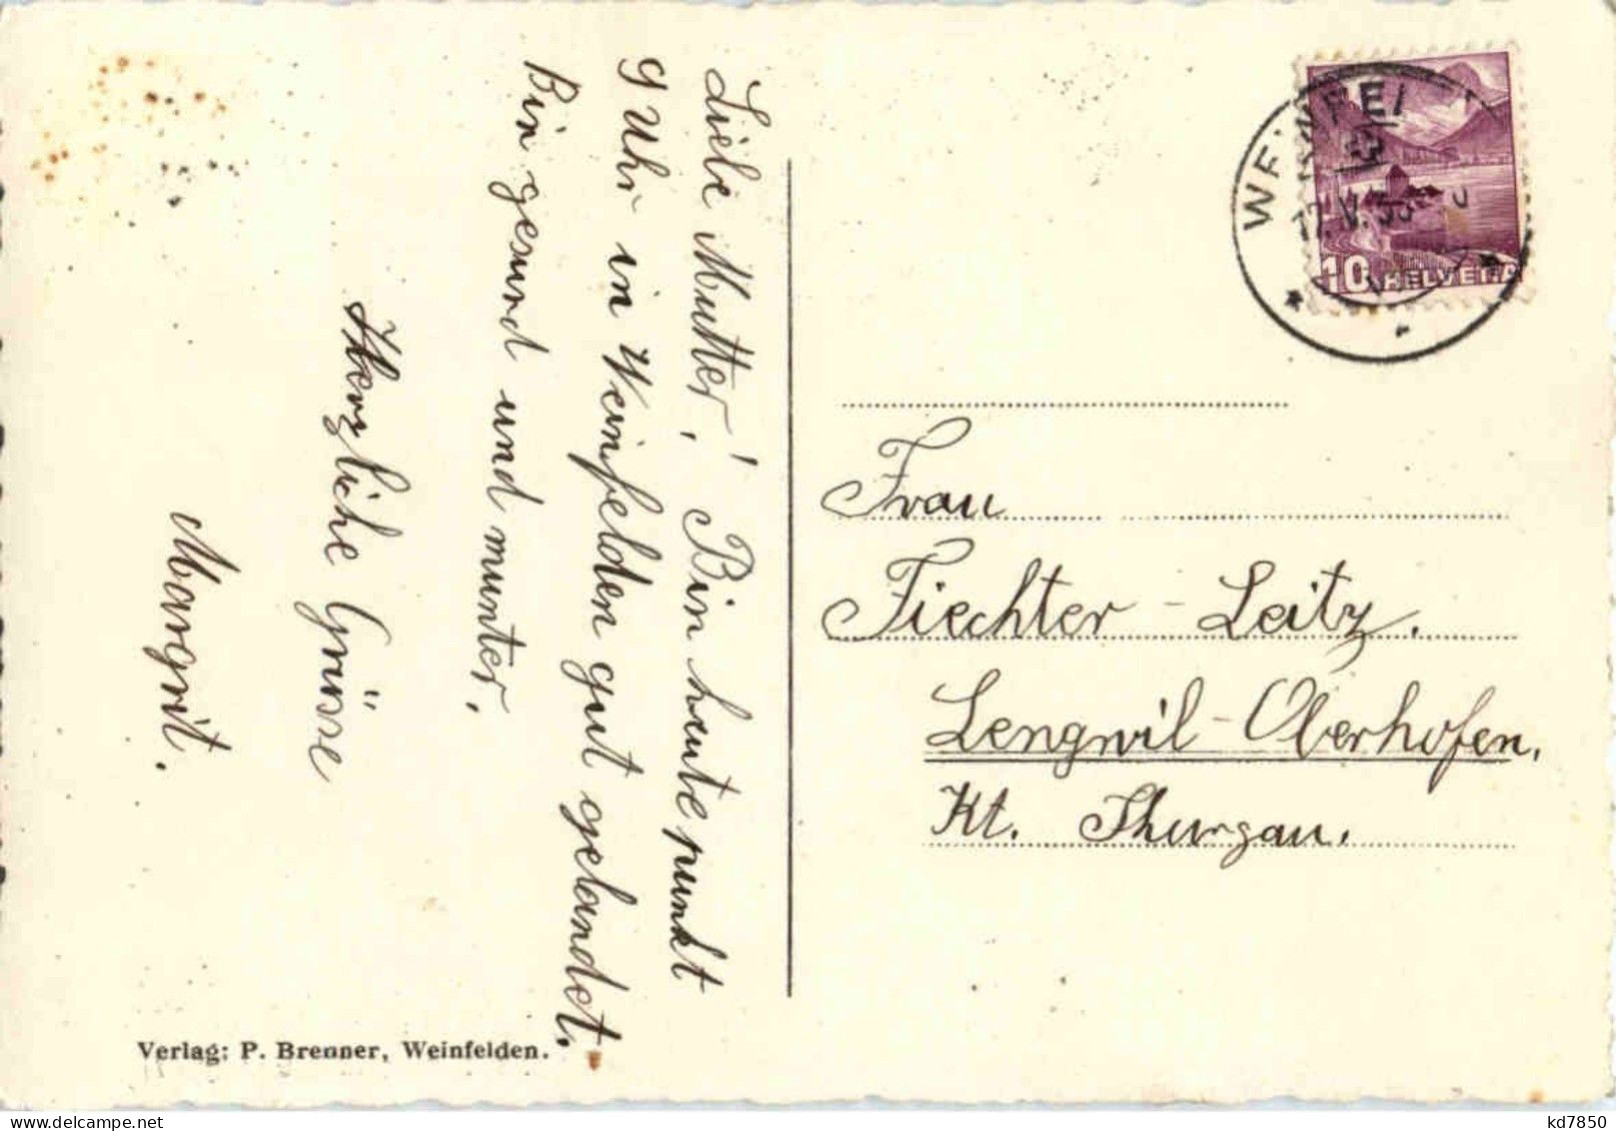 Liebe Mutter! Bin heute punkt
9 Uhr in Weinfelden gut gelandet.
Bin gesund und munter.
Herzliche Grüsse
Margrit.
Verlag: P. Brenner, Weinfelden.
10 HELVETIA
Frau
Fiechter-Leitz.
Lengwil-Oberhofen,
Kt. Thurgau.
kd7850